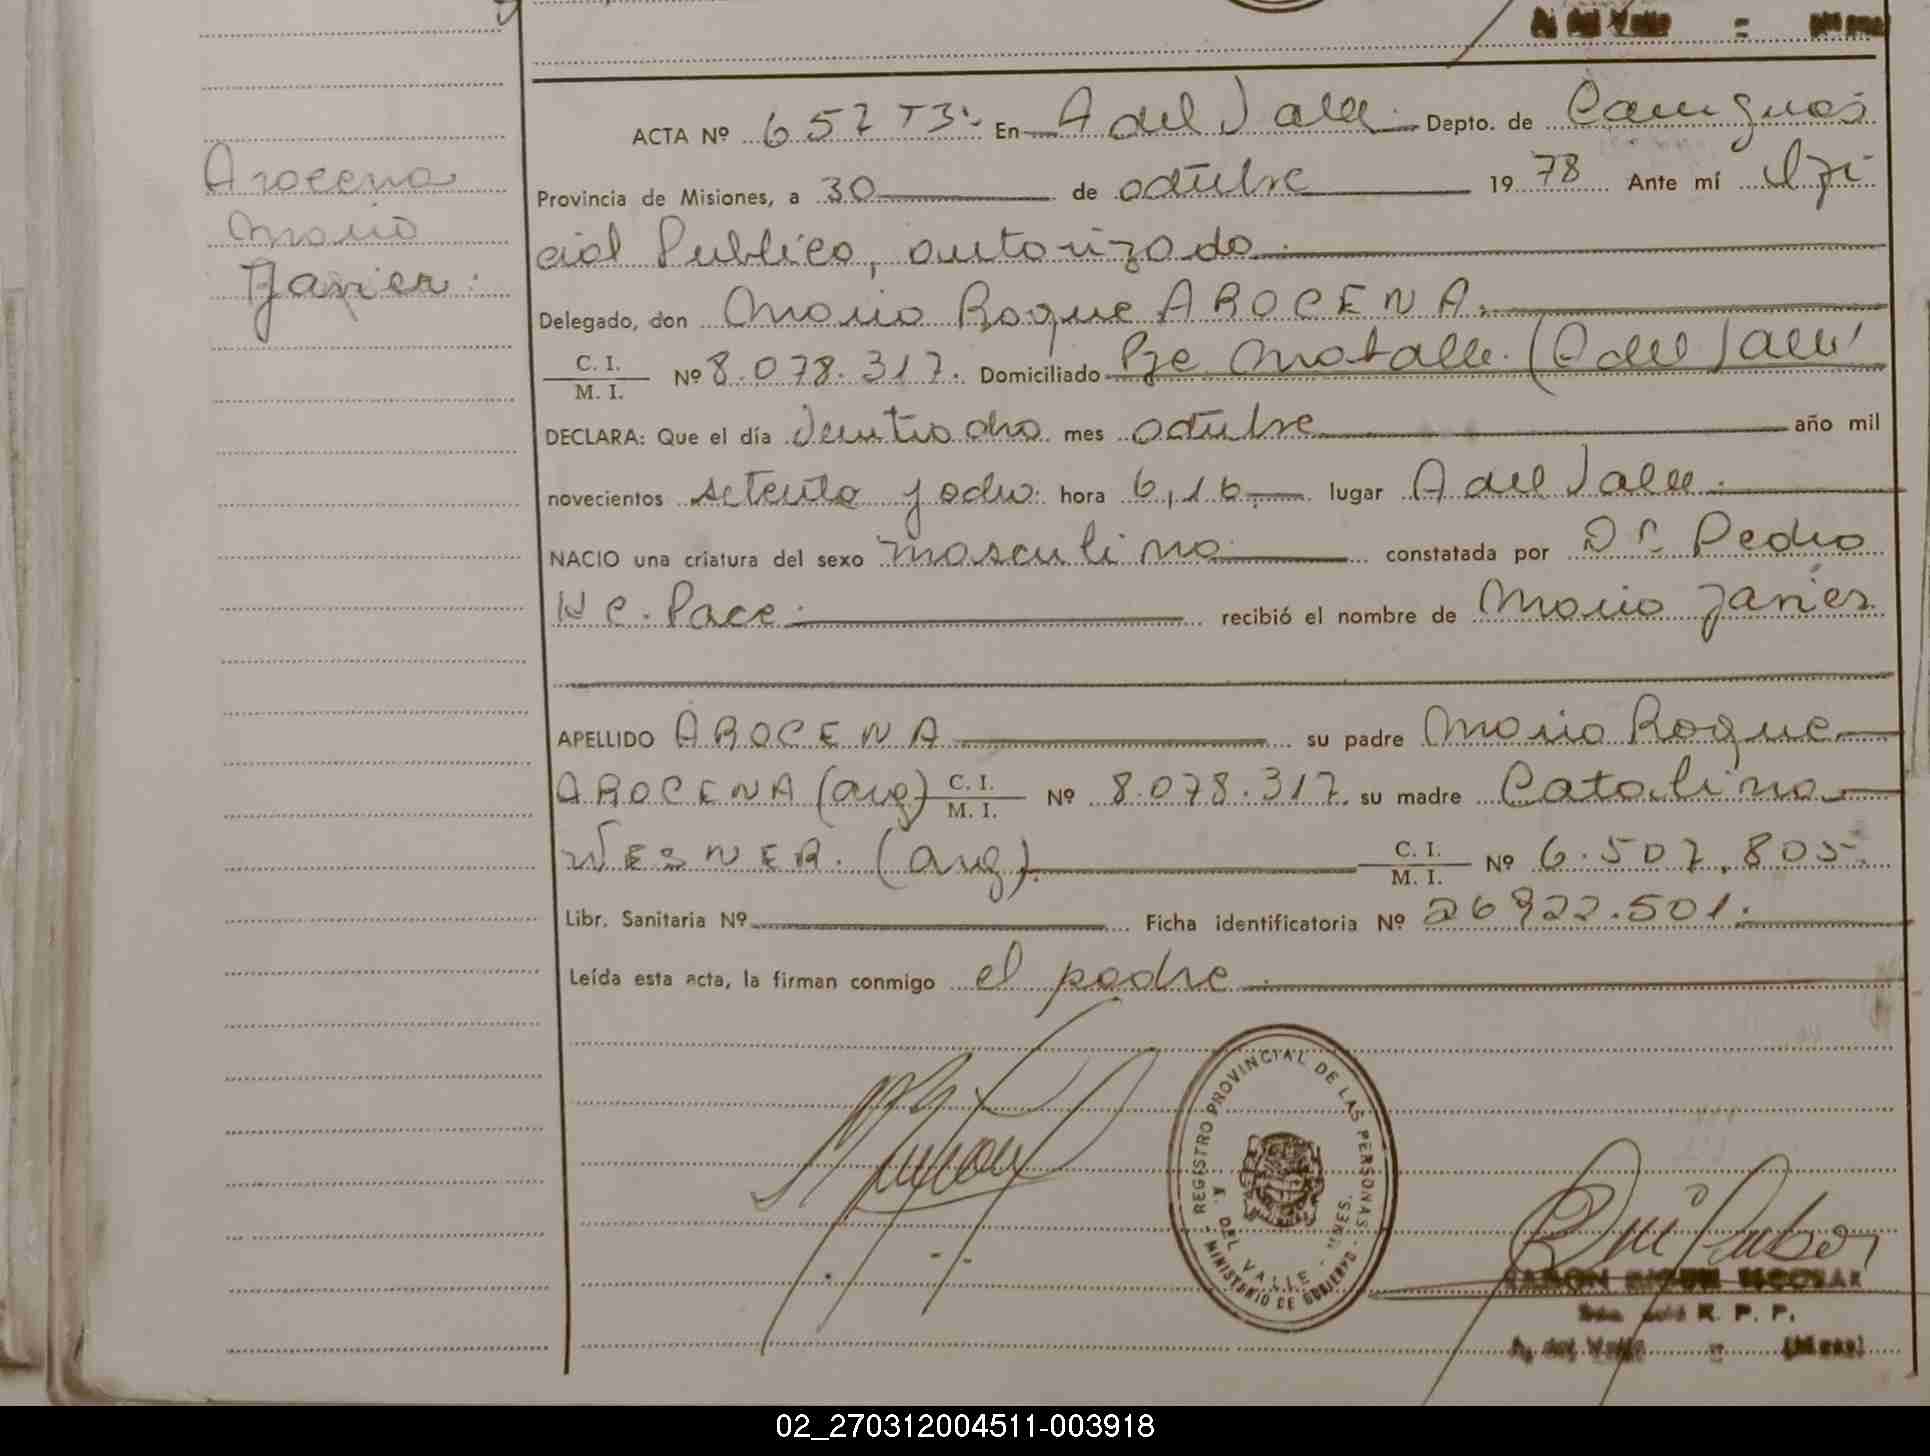 A. del Valle - (Mnes)
ACTA Nº 657 T3: En A del Valle. Depto. de Cainguas
Arocena Provincia de Misiones, a 30 de octubre 1978 Ante mí Ofi
Mario cial Publico, autorizado.
Javier: Delegado, don Mario Roque AROCENA.
C. I.
M. I. Nº 8.078.317. Domiciliado Pje (A del Valle)
DECLARA: Que el día veintiocho mes octubre año mil
novecientos setenta y ocho: hora 6,16 lugar A del Valle.
NACIO una criatura del sexo masculino constatada por Dr. Pedro
H C. Pace. recibió el nombre de Mario Javier
APELLIDO AROCENA su padre Mario Roque
AROCENA (arg) C. I.
M. I. Nº 8.078.317. su madre Catalina
WESNER. (arg). C. I.
M. I. Nº 6.507.805.
Libr. Sanitaria Nº Ficha identificatoria Nº 26922.501.
Leída esta acta, la firman conmigo el padre.
REGISTRO PROVINCIAL DE LAS PERSONAS
A. DEL VALLE - MNES.
MINISTERIO DE GOBIERNO
RAMON MIGUEL ESCOBAR
R. P. P.
A. del Valle - (Mnes)
02_270312004511-003918